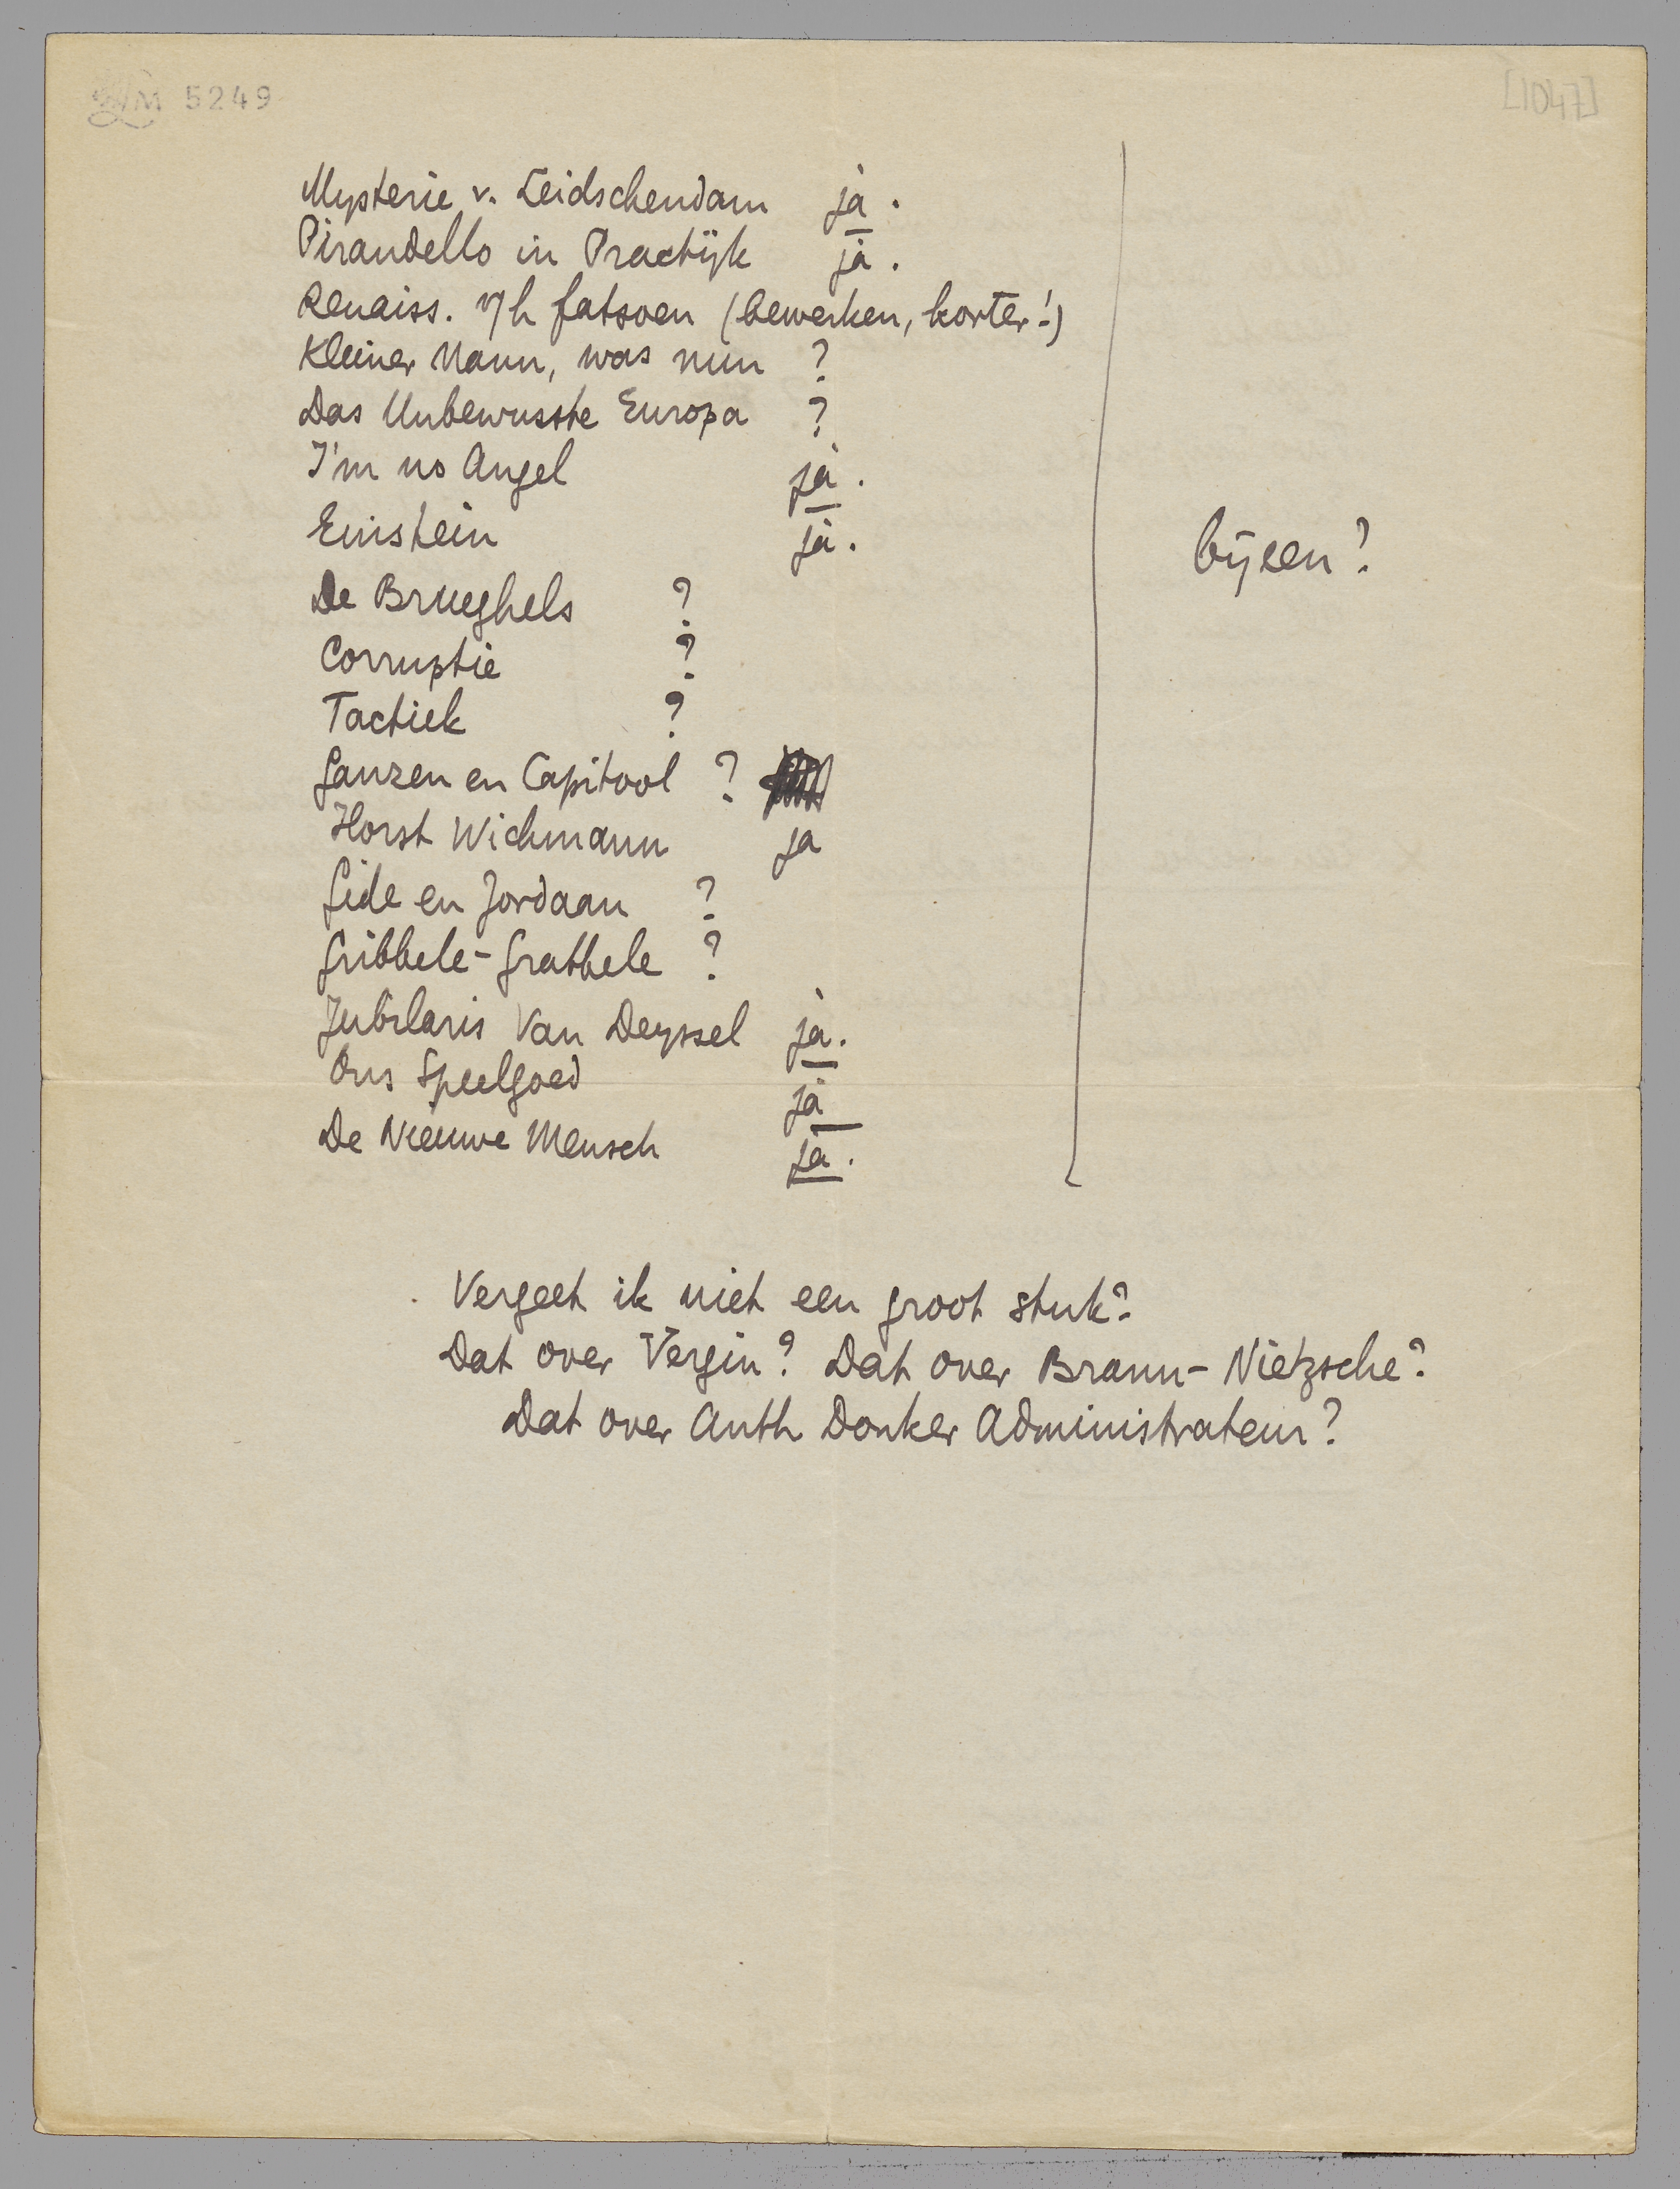 M 5249
[1047]
Mysterie v. Leidschendam ja.
Pirandello in Practijk ja.
Renaiss. v/h fatsoen (bewerken, korter!)
Kleiner Mann, was nun ?
Das Unbewusste Europa ?
I'm no Angel ja.
Einstein ja.
bijeen?
De Brueghels ?
Corruptie ?
Tactiek ?
Ganzen en Capitool ?
Horst Wichmann ja
Gide en Jordaan ?
Gribbele-Grabbele ?
Jubilaris Van Deyssel ja.
Ons Speelgoed ja
De Nieuwe Mensch ja.
Vergeet ik niet een groot stuk?
Dat over Vergin? Dat over Brann-Nietzsche?
Dat over Anth Donker Administrateur?